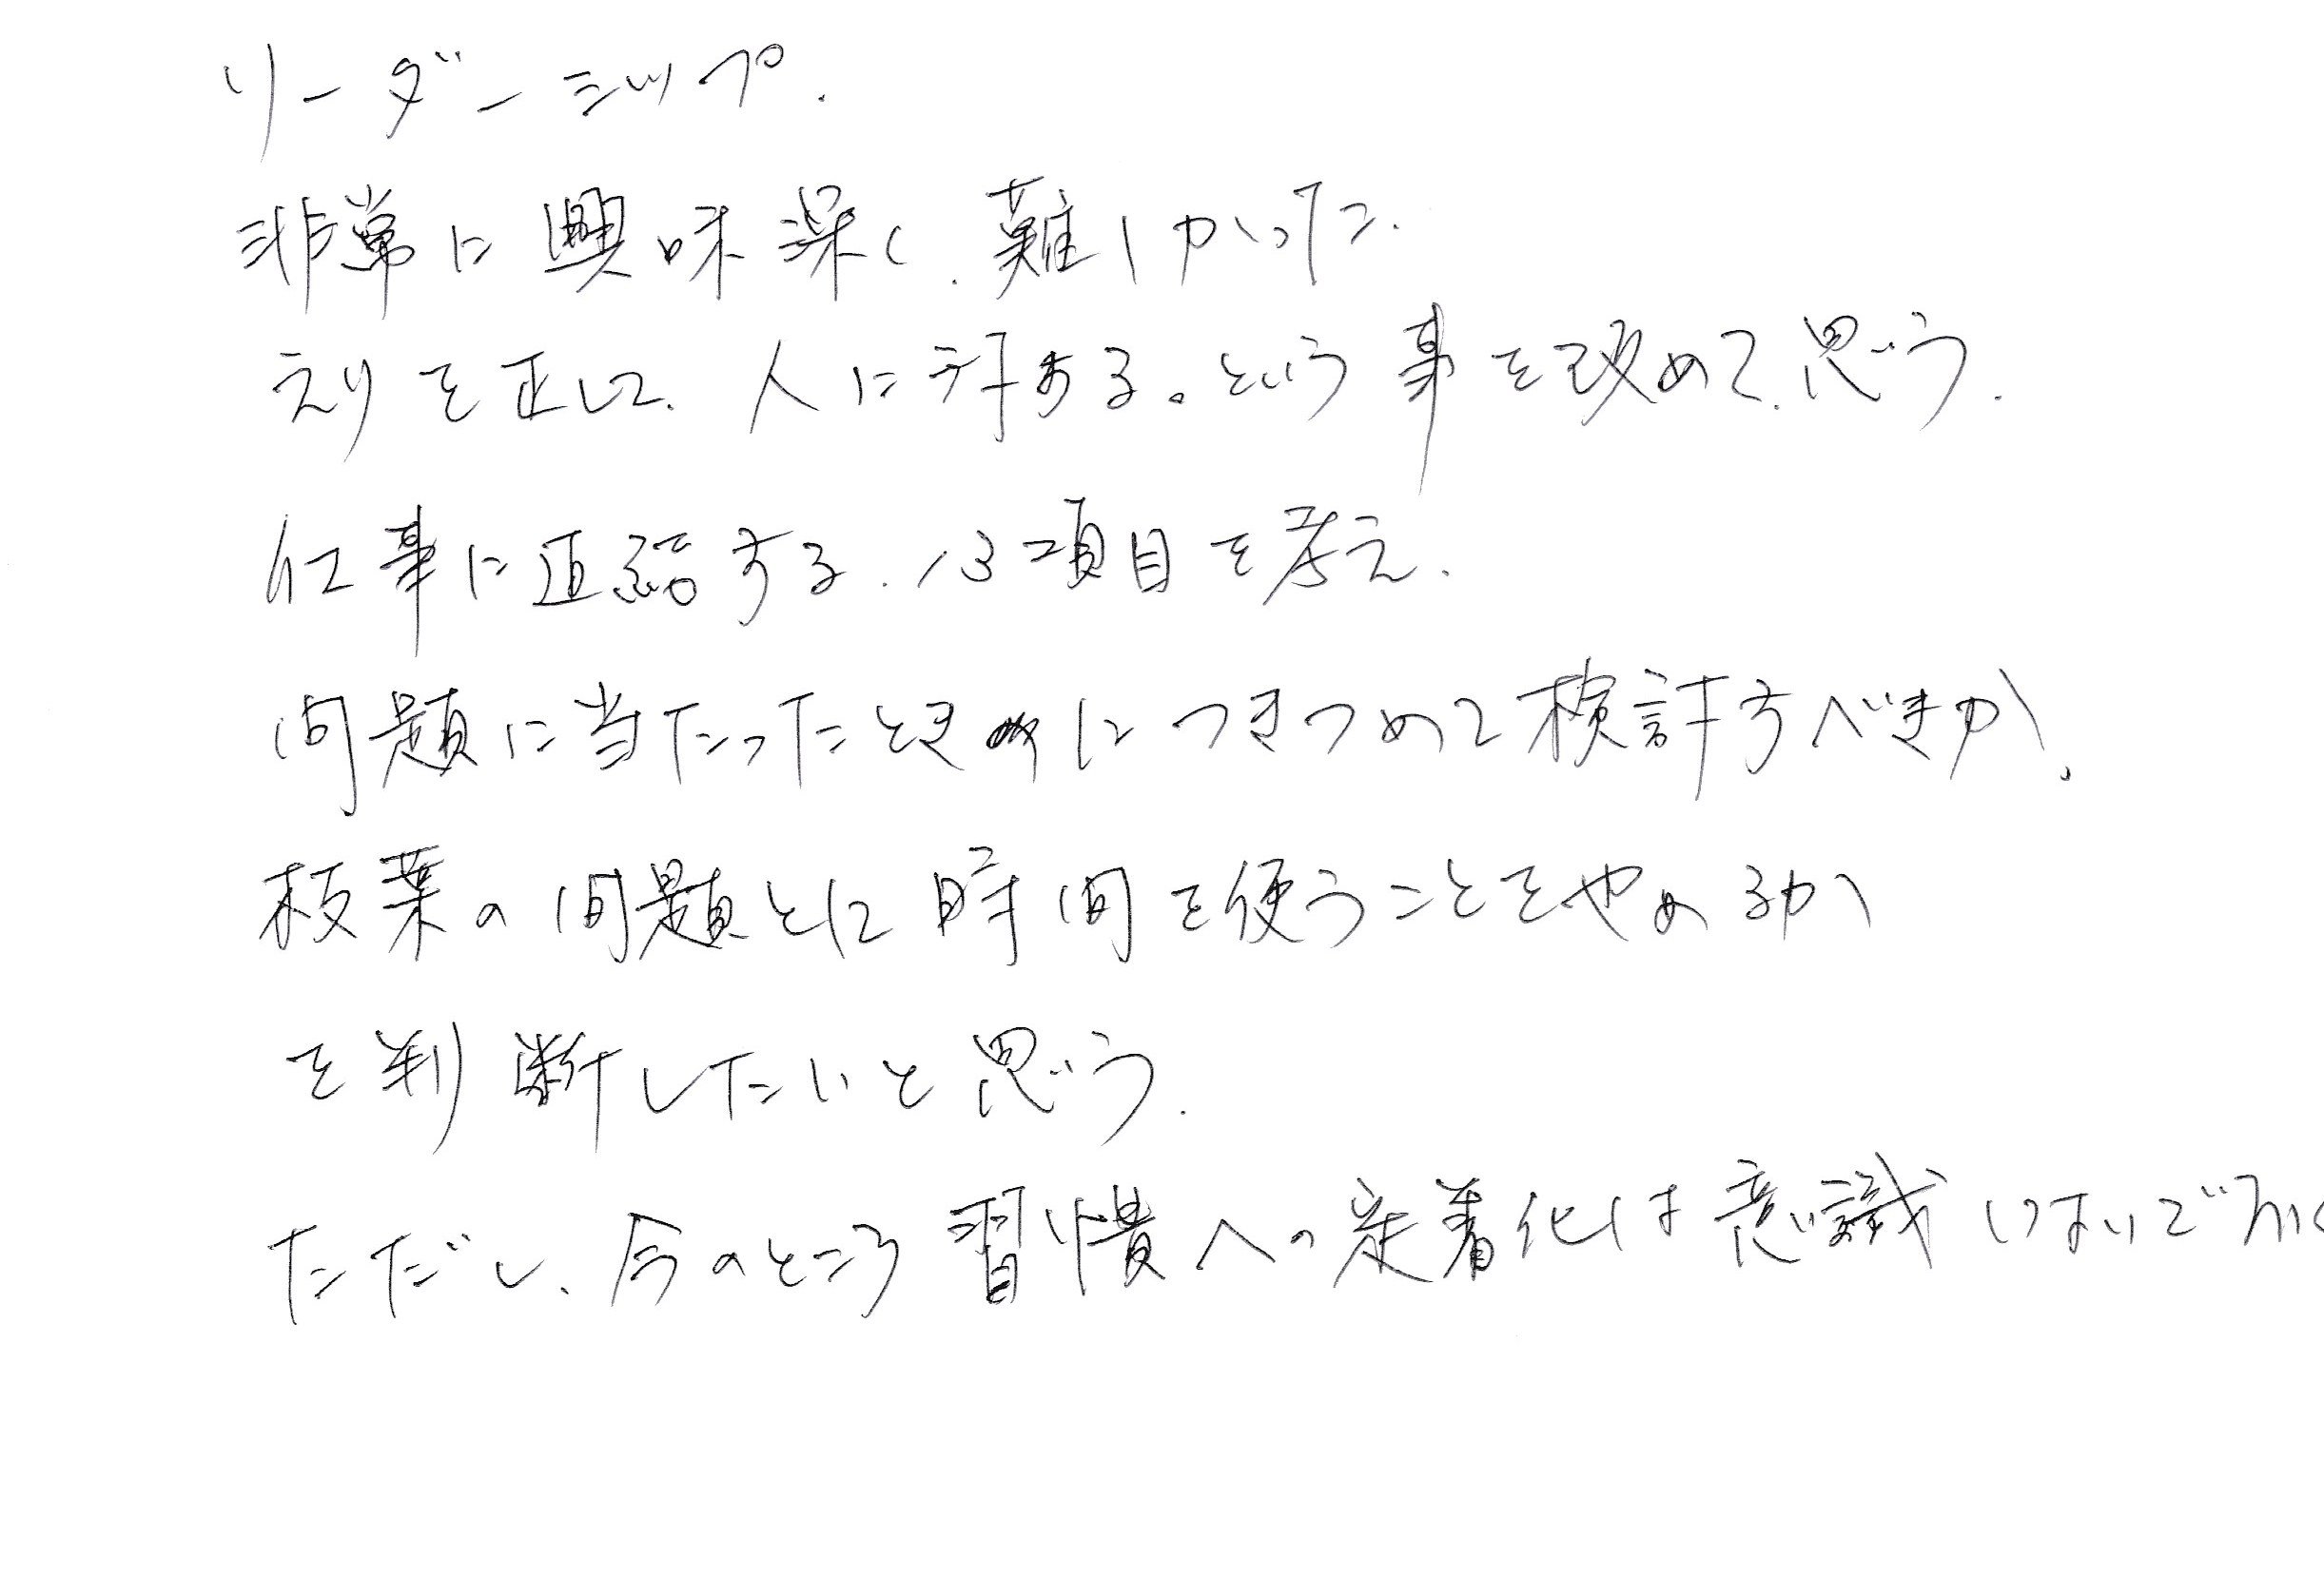 リーダーシップ.
非常に興味深く.難しかった.
えりを正して.人に対する。という事を改めて.思う.
仕事に直結する.13項目を考え.
問題に当たったときにつきつめて検討すべきか、
枝葉の問題とに時間を使うことをやめるか
を判断したいと思う.
ただし、今のところ習慣への定着化は意識しないで